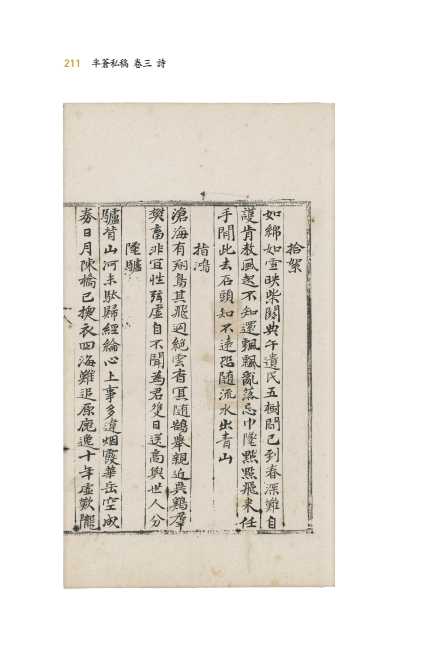 211 半蒼私稿 卷三 詩
拾絮
如綿如雪映柴關典午遺民五樹間已到春深難自
護肯教風起不知還飄飄亂落忘巾墮點點飛來任
手閒此去石頭知不遠恐隨流水出青山
指鴻
滄海有翔鳥其飛迥絶雲杳冥隨鵠舉親近異鷄群
樊畜非宜性弦虛自不聞爲君雙目送高與世人分
墮驢
驢背山河未馱歸經綸心上事多違烟霞華岳空成
券日月陳橋已換衣四海難追原鹿逸十年虛歎隴